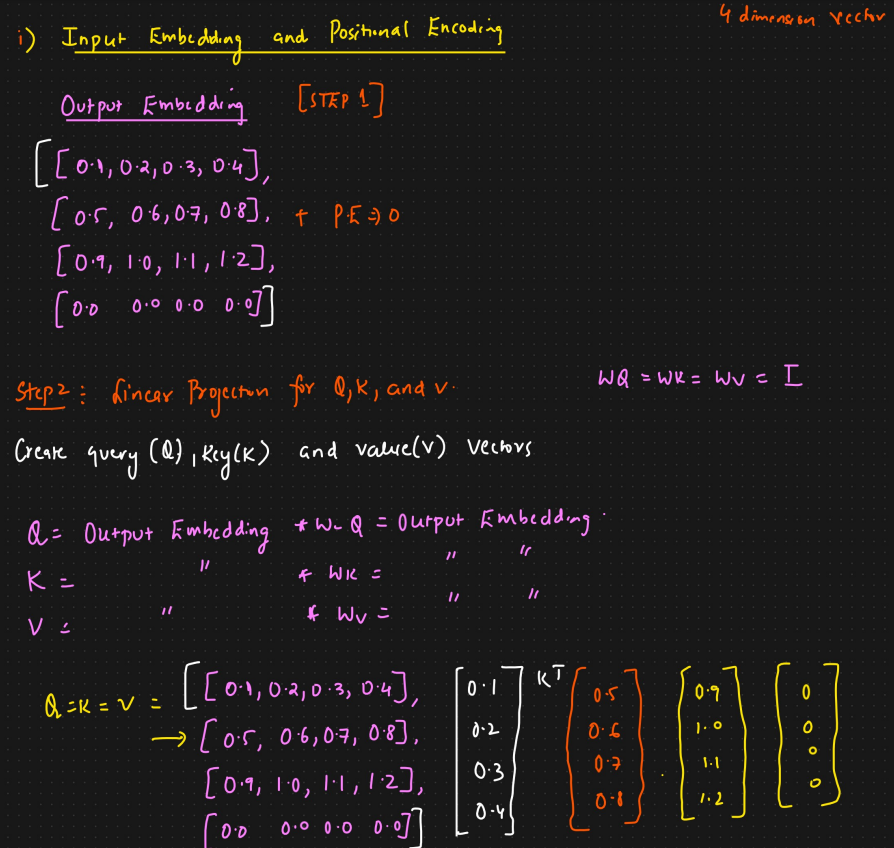 4 dimension vector
i) Input Embedding and Positional Encoding
Output Embedding [STEP 1]
[[0.1, 0.2, 0.3, 0.4],
[0.5, 0.6, 0.7, 0.8], + P.E => 0
[0.9, 1.0, 1.1, 1.2],
[0.0 0.0 0.0 0.0]]
Step 2: Linear Projection for Q, K, and V. WQ = WK = WV = I
Create query (Q), key(K) and value(V) vectors
Q = Output Embedding * W_Q = Output Embedding.
K = " * WK = " "
V = " * WV = " "
Q = K = V = [[0.1, 0.2, 0.3, 0.4], [0.1 KT [0.5 [0.9 [0
→ [0.5, 0.6, 0.7, 0.8], 0.2 0.6 1.0 0
[0.9, 1.0, 1.1, 1.2], 0.3 0.7 . 1.1 0
[0.0 0.0 0.0 0.0]] 0.4] 0.8] 1.2] 0]